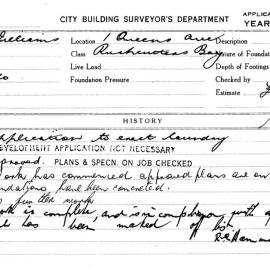 CITY BUILDING SURVEYOR'S DEPARTMENT APPLICA
YEAR
Williams Location 1 Queens Ave Description
Class Rushcutters Bay Nature of Foundat
Live Load Depth of Footings
Foundation Pressure Checked by
Estimate
HISTORY
application to erect laundry
DEVELOPMENT APPLICATION NOT NECESSARY
approved. PLANS & SPECN. ON JOB CHECKED
work has commenced approved plans are on
foundations have been concreted.
no further work
work is complete, and is in compliance with a
has been marked off list